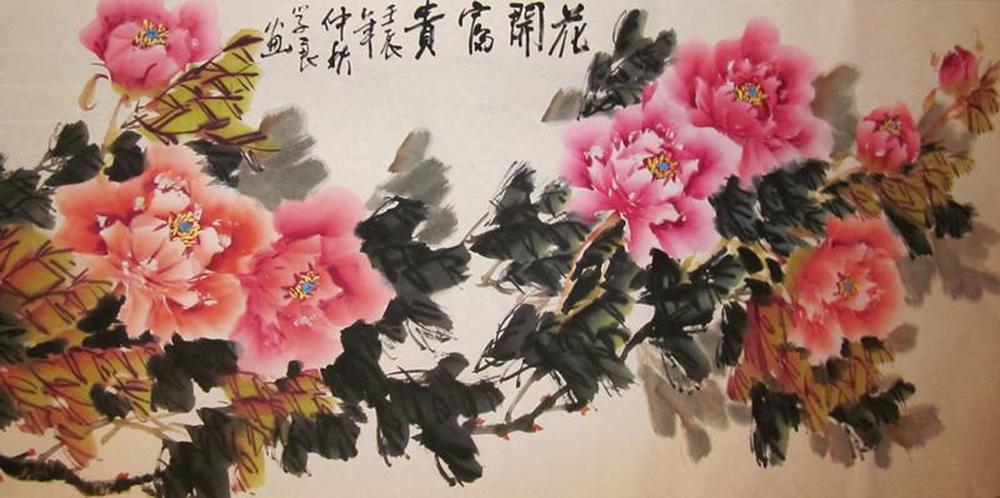 花開富貴
壬辰
年
仲秋
学良
画